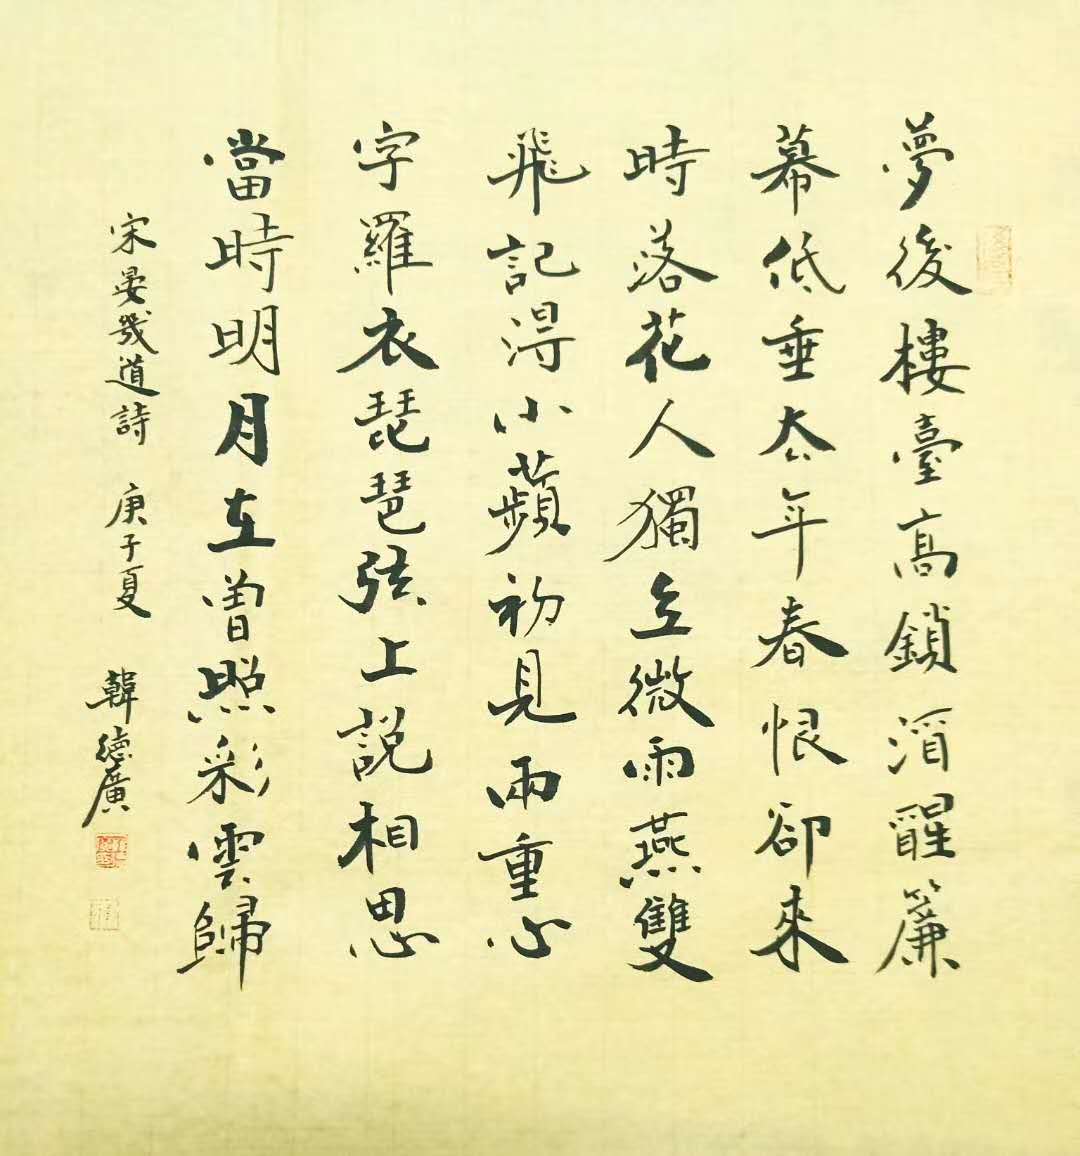 夢後樓臺高鎖酒醒簾
幕低垂去年春恨卻來
時落花人獨立微雨燕雙
飛記得小蘋初見兩重心
字羅衣琵琶弦上說相思
當時明月在曾照彩雲歸
宋晏幾道詩 庚子夏 韓德廣